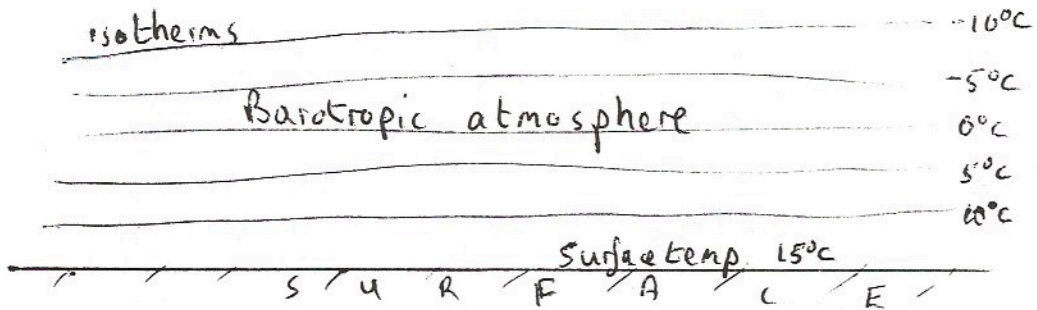 isotherms
-10°C
-5°C
Barotropic atmosphere
0°C
5°C
10°C
Surface temp. 15°C
S U R F A C E